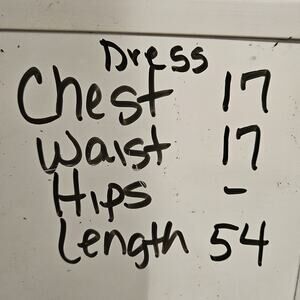 Dress
Chest 17
Waist 17
Hips -
Length 54